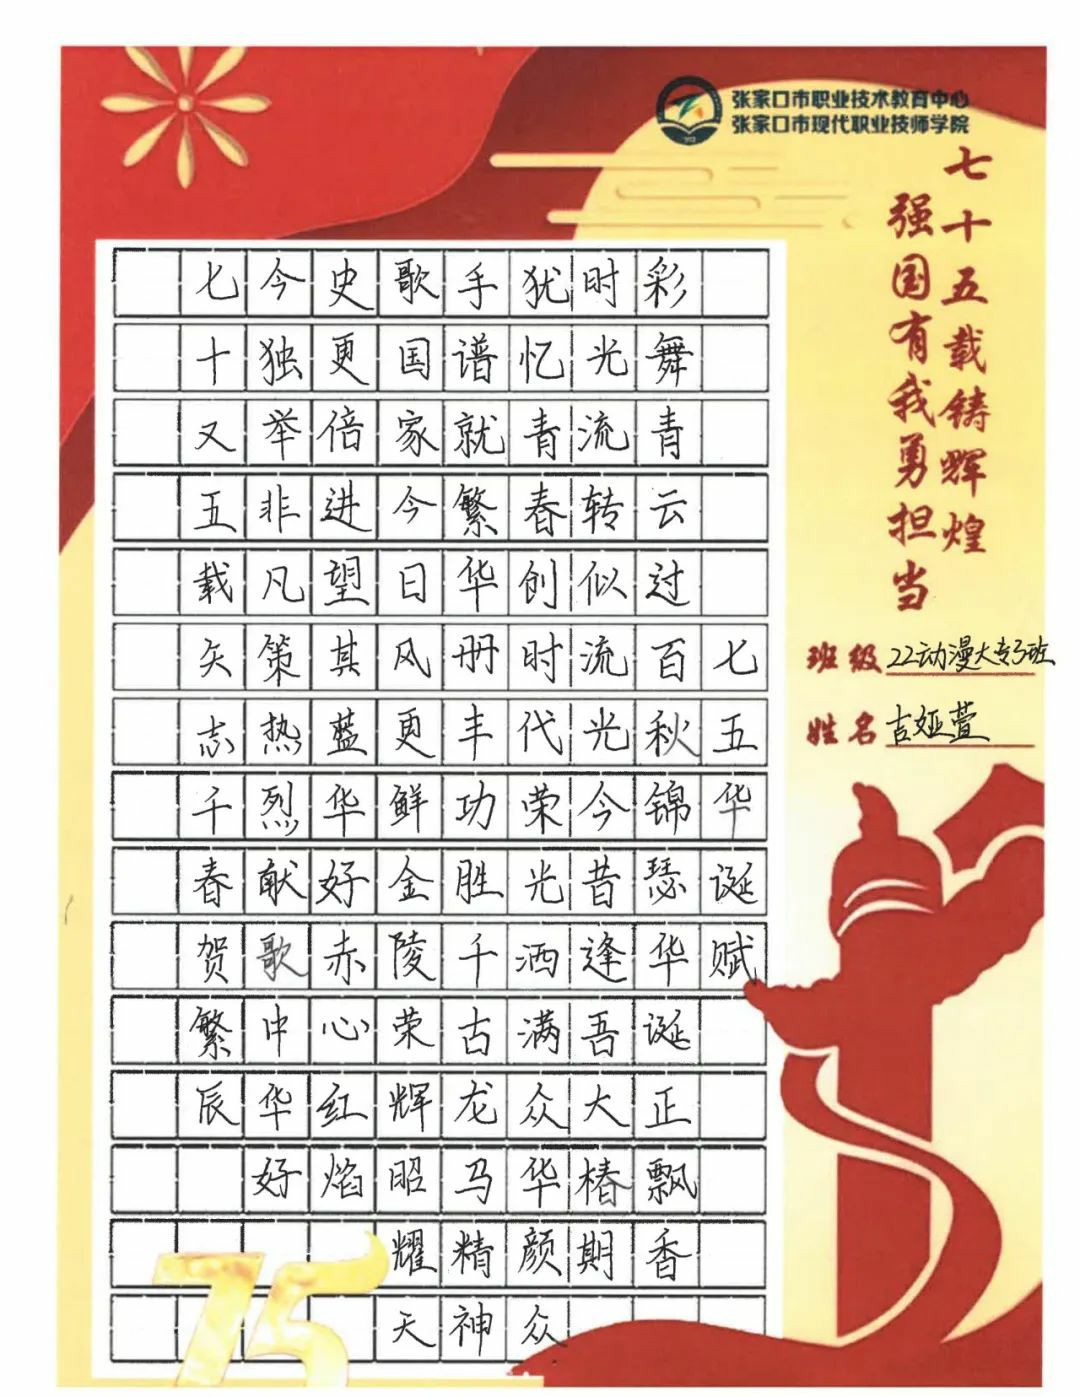 张家口市职业技术教育中心
张家口市现代职业技师学院
七十五载铸辉煌
强国有我勇担当
班级 22动漫大专3班
姓名 吉娅萱
七五华诞赋
彩舞青云过百秋锦瑟华诞正飘香
时光流转似流光今昔逢吾大椿期
犹忆青春创时代荣光洒满众华颜众
手谱就繁华册丰功胜千古龙马精神
歌国家今日风更鲜金陵荣辉昭耀天
史更倍进望其蓝华好赤心红焰
今独举非凡策热烈献歌中华好
七十又五载矢志千春贺繁辰
75